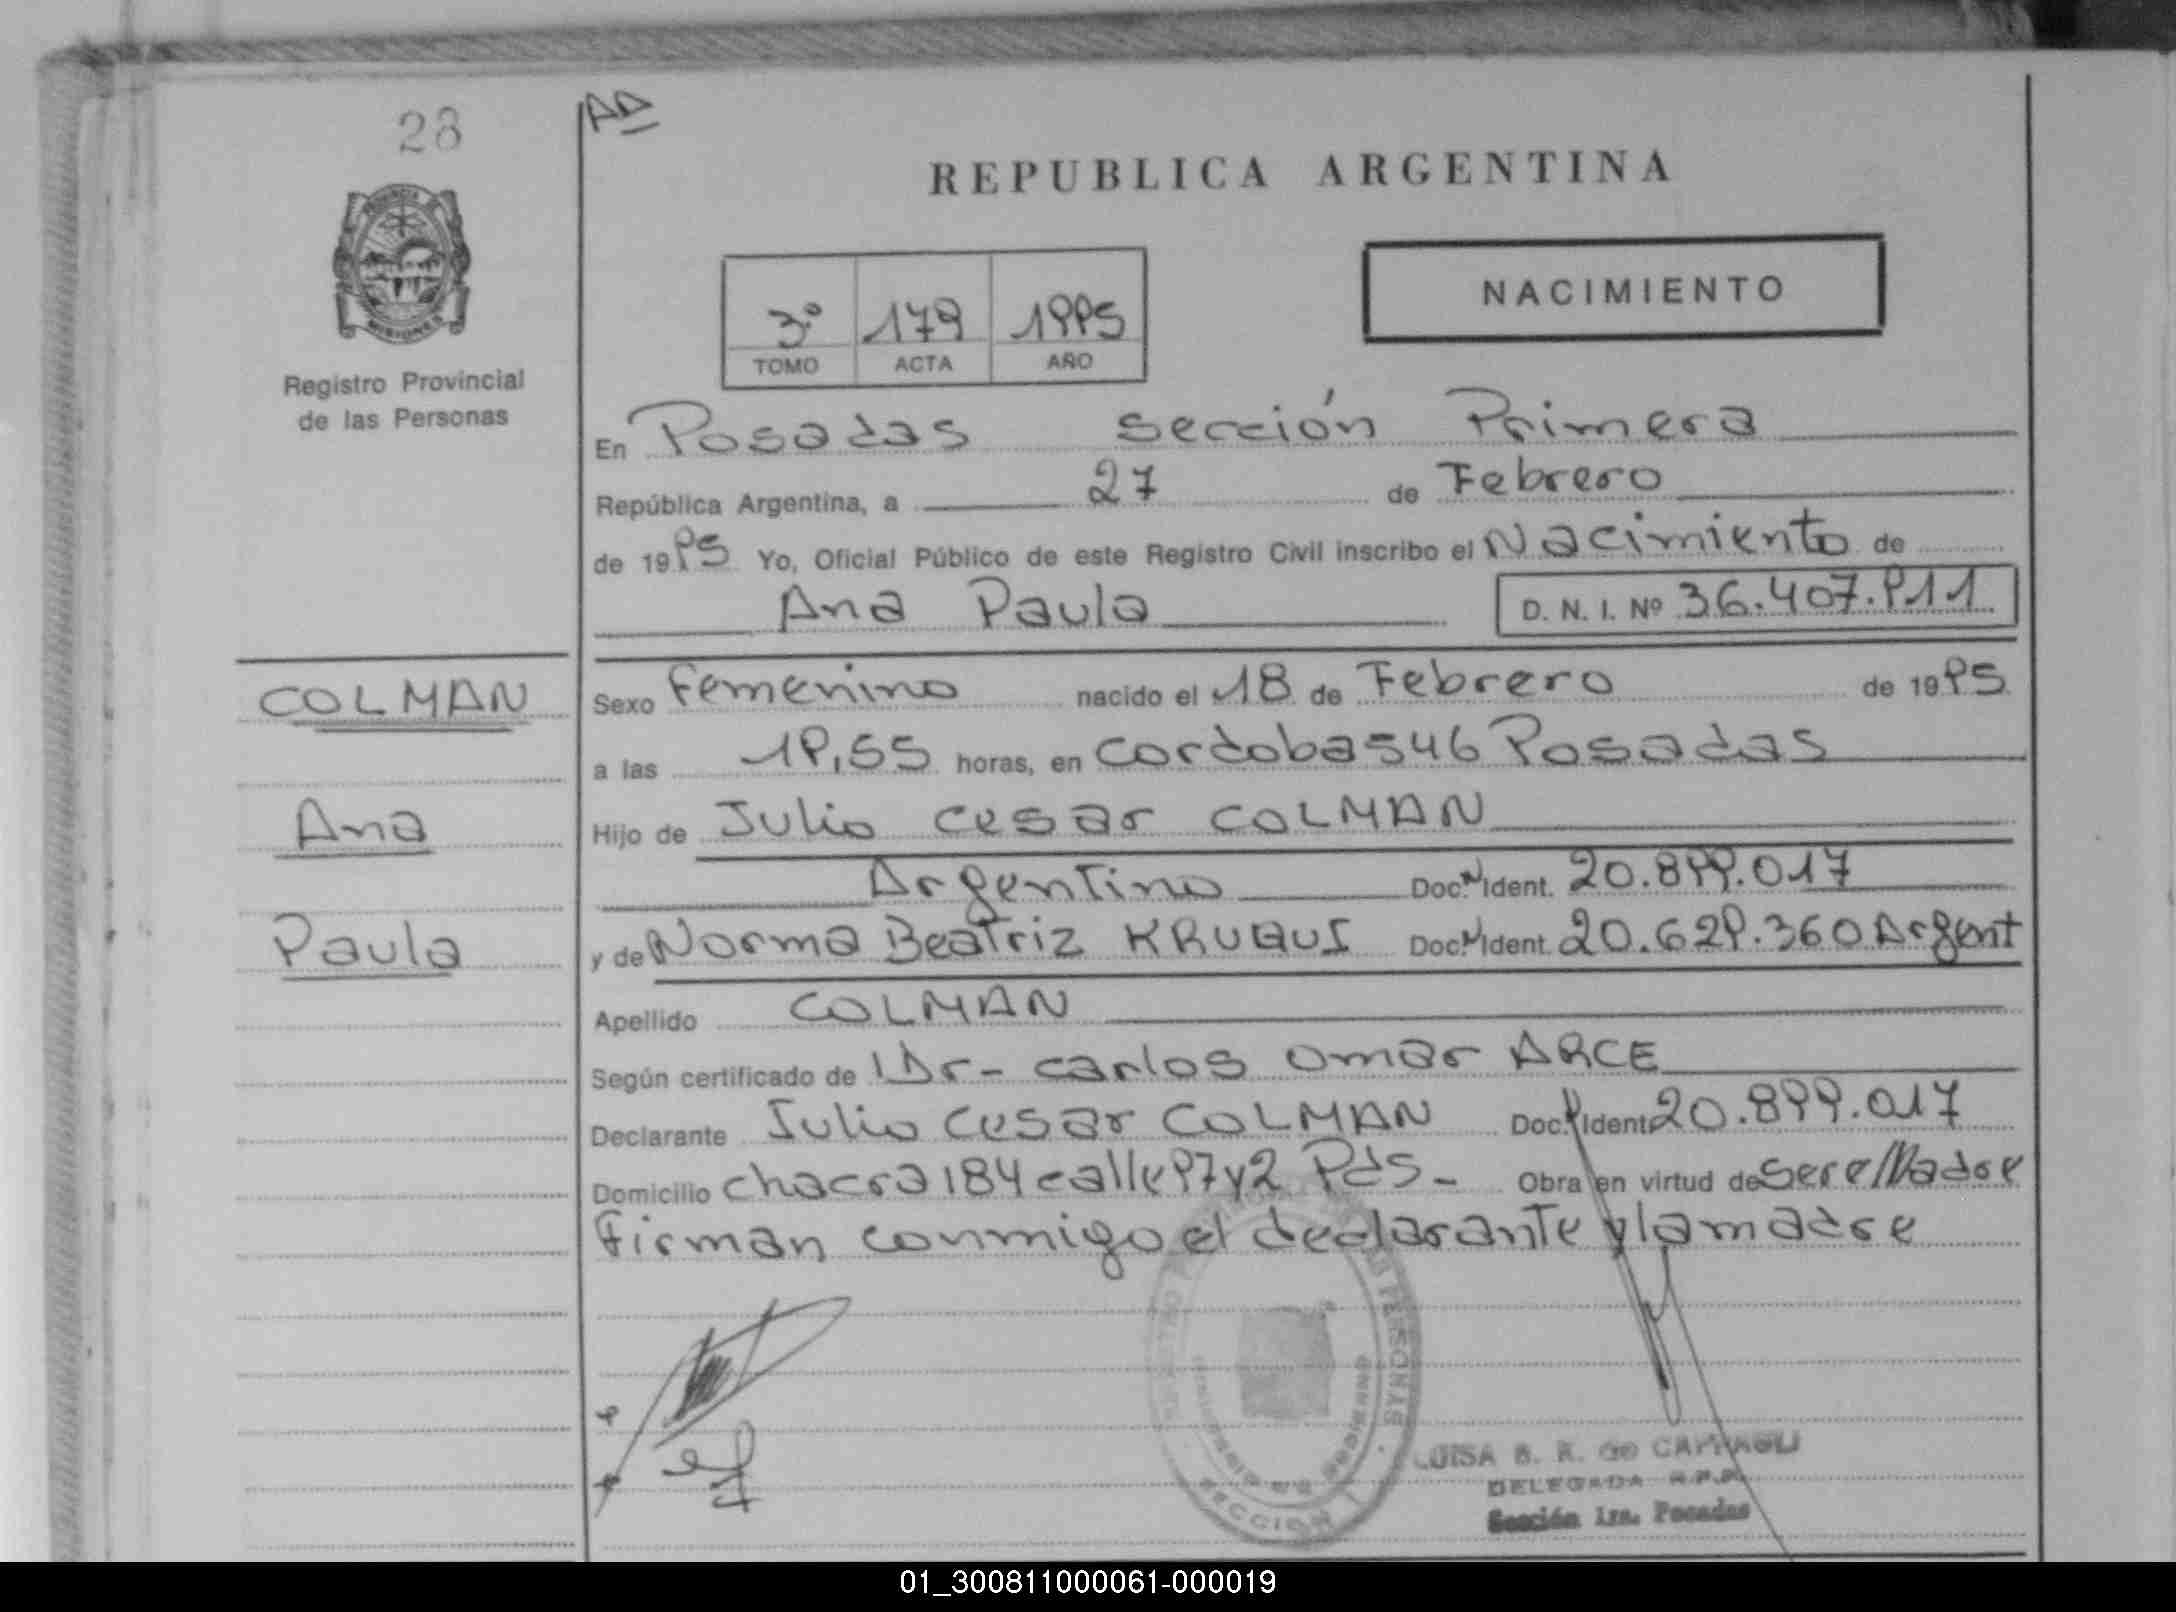 28
AD
REPUBLICA ARGENTINA
PROVINCIA DE
MISIONES
Registro Provincial
de las Personas
3º 179 1995
TOMO ACTA AÑO
NACIMIENTO
En Posadas sección Primera
República Argentina, a 27 de Febrero
de 1995 Yo, Oficial Público de este Registro Civil inscribo el Nacimiento de
Ana Paula D. N. I. Nº 36.407.911
COLMAN
Ana
Paula
Sexo Femenino nacido el 18 de Febrero de 1995
a las 19,55 horas, en Cordoba 546 Posadas
Hijo de Julio Cesar COLMAN
Argentino Doc. Ident. 20.899.017
y de Norma Beatriz Doc. Ident. 20.629.360 Argent
Apellido COLMAN
Según certificado de Dr- Carlos Omar ARCE
Declarante Julio Cesar COLMAN Doc. Ident. 20.899.017
Domicilio chacra 184 calle 97 y 2 Pds- Obra en virtud de ser el Padre
Firman conmigo el declarante y la madre
REGISTRO PERSONAS
SECCION 1
LUISA B. R. de
DELEGADA R.P.P.
Sección 1ra. Posadas
01_300811000061-000019